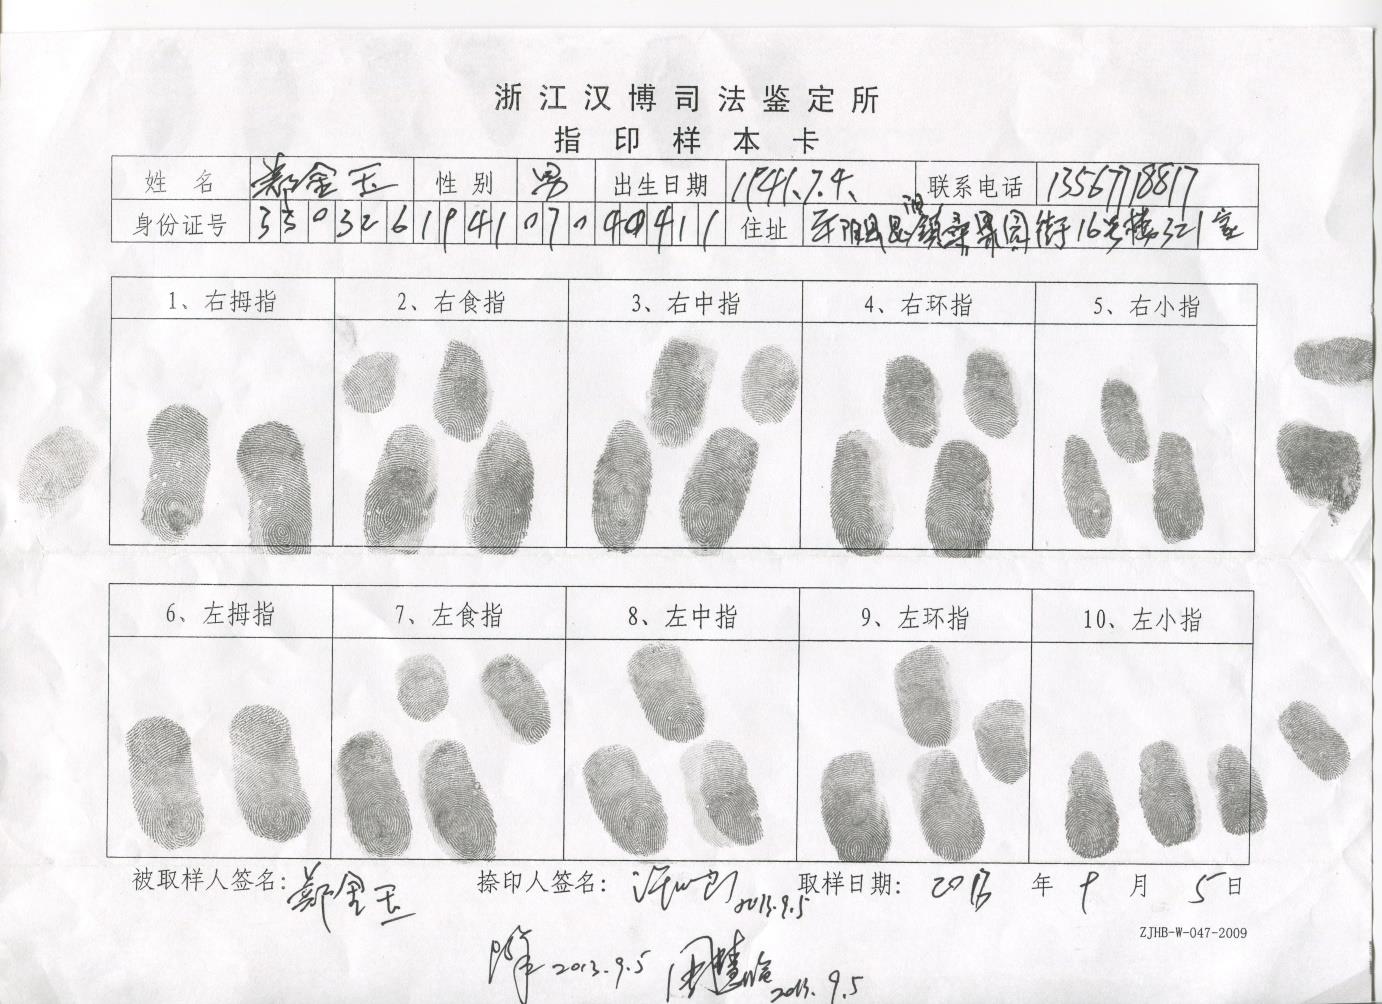 浙江汉博司法鉴定所
指印样本卡
姓名 郑金玉 性别 男 出生日期 1941.7.4. 联系电话 13567718817
身份证号 330326194107044411 住址 平阳县昆阳镇桑果园街16号楼321室
1、右拇指 2、右食指 3、右中指 4、右环指 5、右小指
6、左拇指 7、左食指 8、左中指 9、左环指 10、左小指
被取样人签名：郑金玉 捺印人签名： 2013.9.5 取样日期：2013 年 9 月 5 日
ZJHB-W-047-2009
2013.9.5 2013.9.5